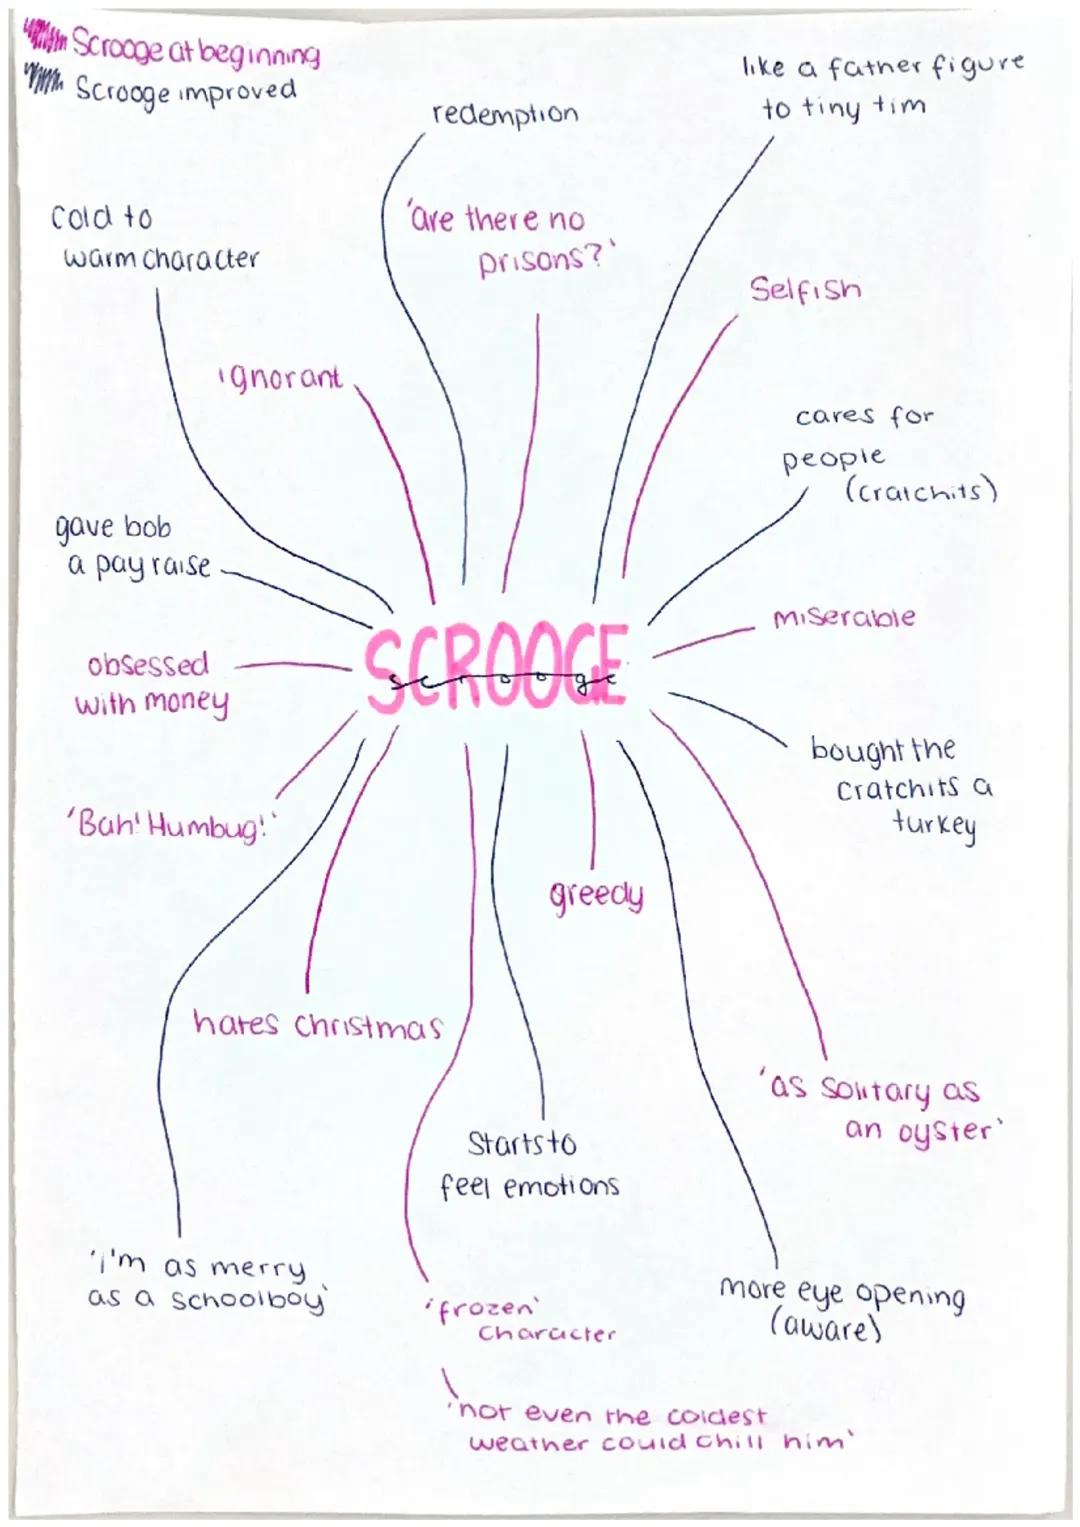 Scrooge at beginning
Scrooge improved
like a father figure
to tiny tim
redemption
'are there no
prisons?'
cold to
warm character
Selfish
ignorant
cares for
people
(cratchits)
gave bob
a pay raise
miserable
SCROOGE
scrooge
obsessed
with money
bought the
cratchits a
turkey
'Bah! Humbug!'
greedy
hates christmas
'as solitary as
an oyster'
Starts to
feel emotions
'i'm as merry
as a schoolboy'
more eye opening
(aware)
'frozen'
character
'not even the coldest
weather could chill him'